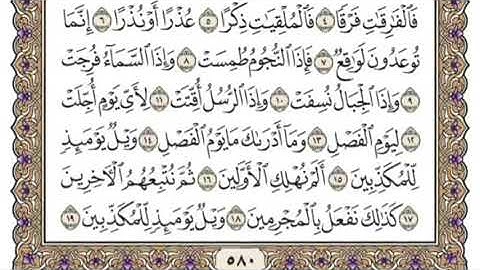 فَٱلۡفَٰرِقَٰتِ فَرۡقٗا ٤ فَٱلۡمُلۡقِيَٰتِ ذِكۡرًا ٥ عُذۡرًا أَوۡ نُذۡرًا ٦ إِنَّمَا
تُوعَدُونَ لَوَٰقِعٞ ٧ فَإِذَا ٱلنُّجُومُ طُمِسَتۡ ٨ وَإِذَا ٱلسَّمَآءُ فُرِجَتۡ
٩ وَإِذَا ٱلۡجِبَالُ نُسِفَتۡ ١٠ وَإِذَا ٱلرُّسُلُ أُقِّتَتۡ ١١ لِأَيِّ يَوۡمٍ أُجِّلَتۡ
١٢ لِيَوۡمِ ٱلۡفَصۡلِ ١٣ وَمَآ أَدۡرَىٰكَ مَا يَوۡمُ ٱلۡفَصۡلِ ١٤ وَيۡلٞ يَوۡمَئِذٖ
لِّلۡمُكَذِّبِينَ ١٥ أَلَمۡ نُهۡلِكِ ٱلۡأَوَّلِينَ ١٦ ثُمَّ نُتۡبِعُهُمُ ٱلۡأٓخِرِينَ
١٧ كَذَٰلِكَ نَفۡعَلُ بِٱلۡمُجۡرِمِينَ ١٨ وَيۡلٞ يَوۡمَئِذٖ لِّلۡمُكَذِّبِينَ ١٩
٥٨٠